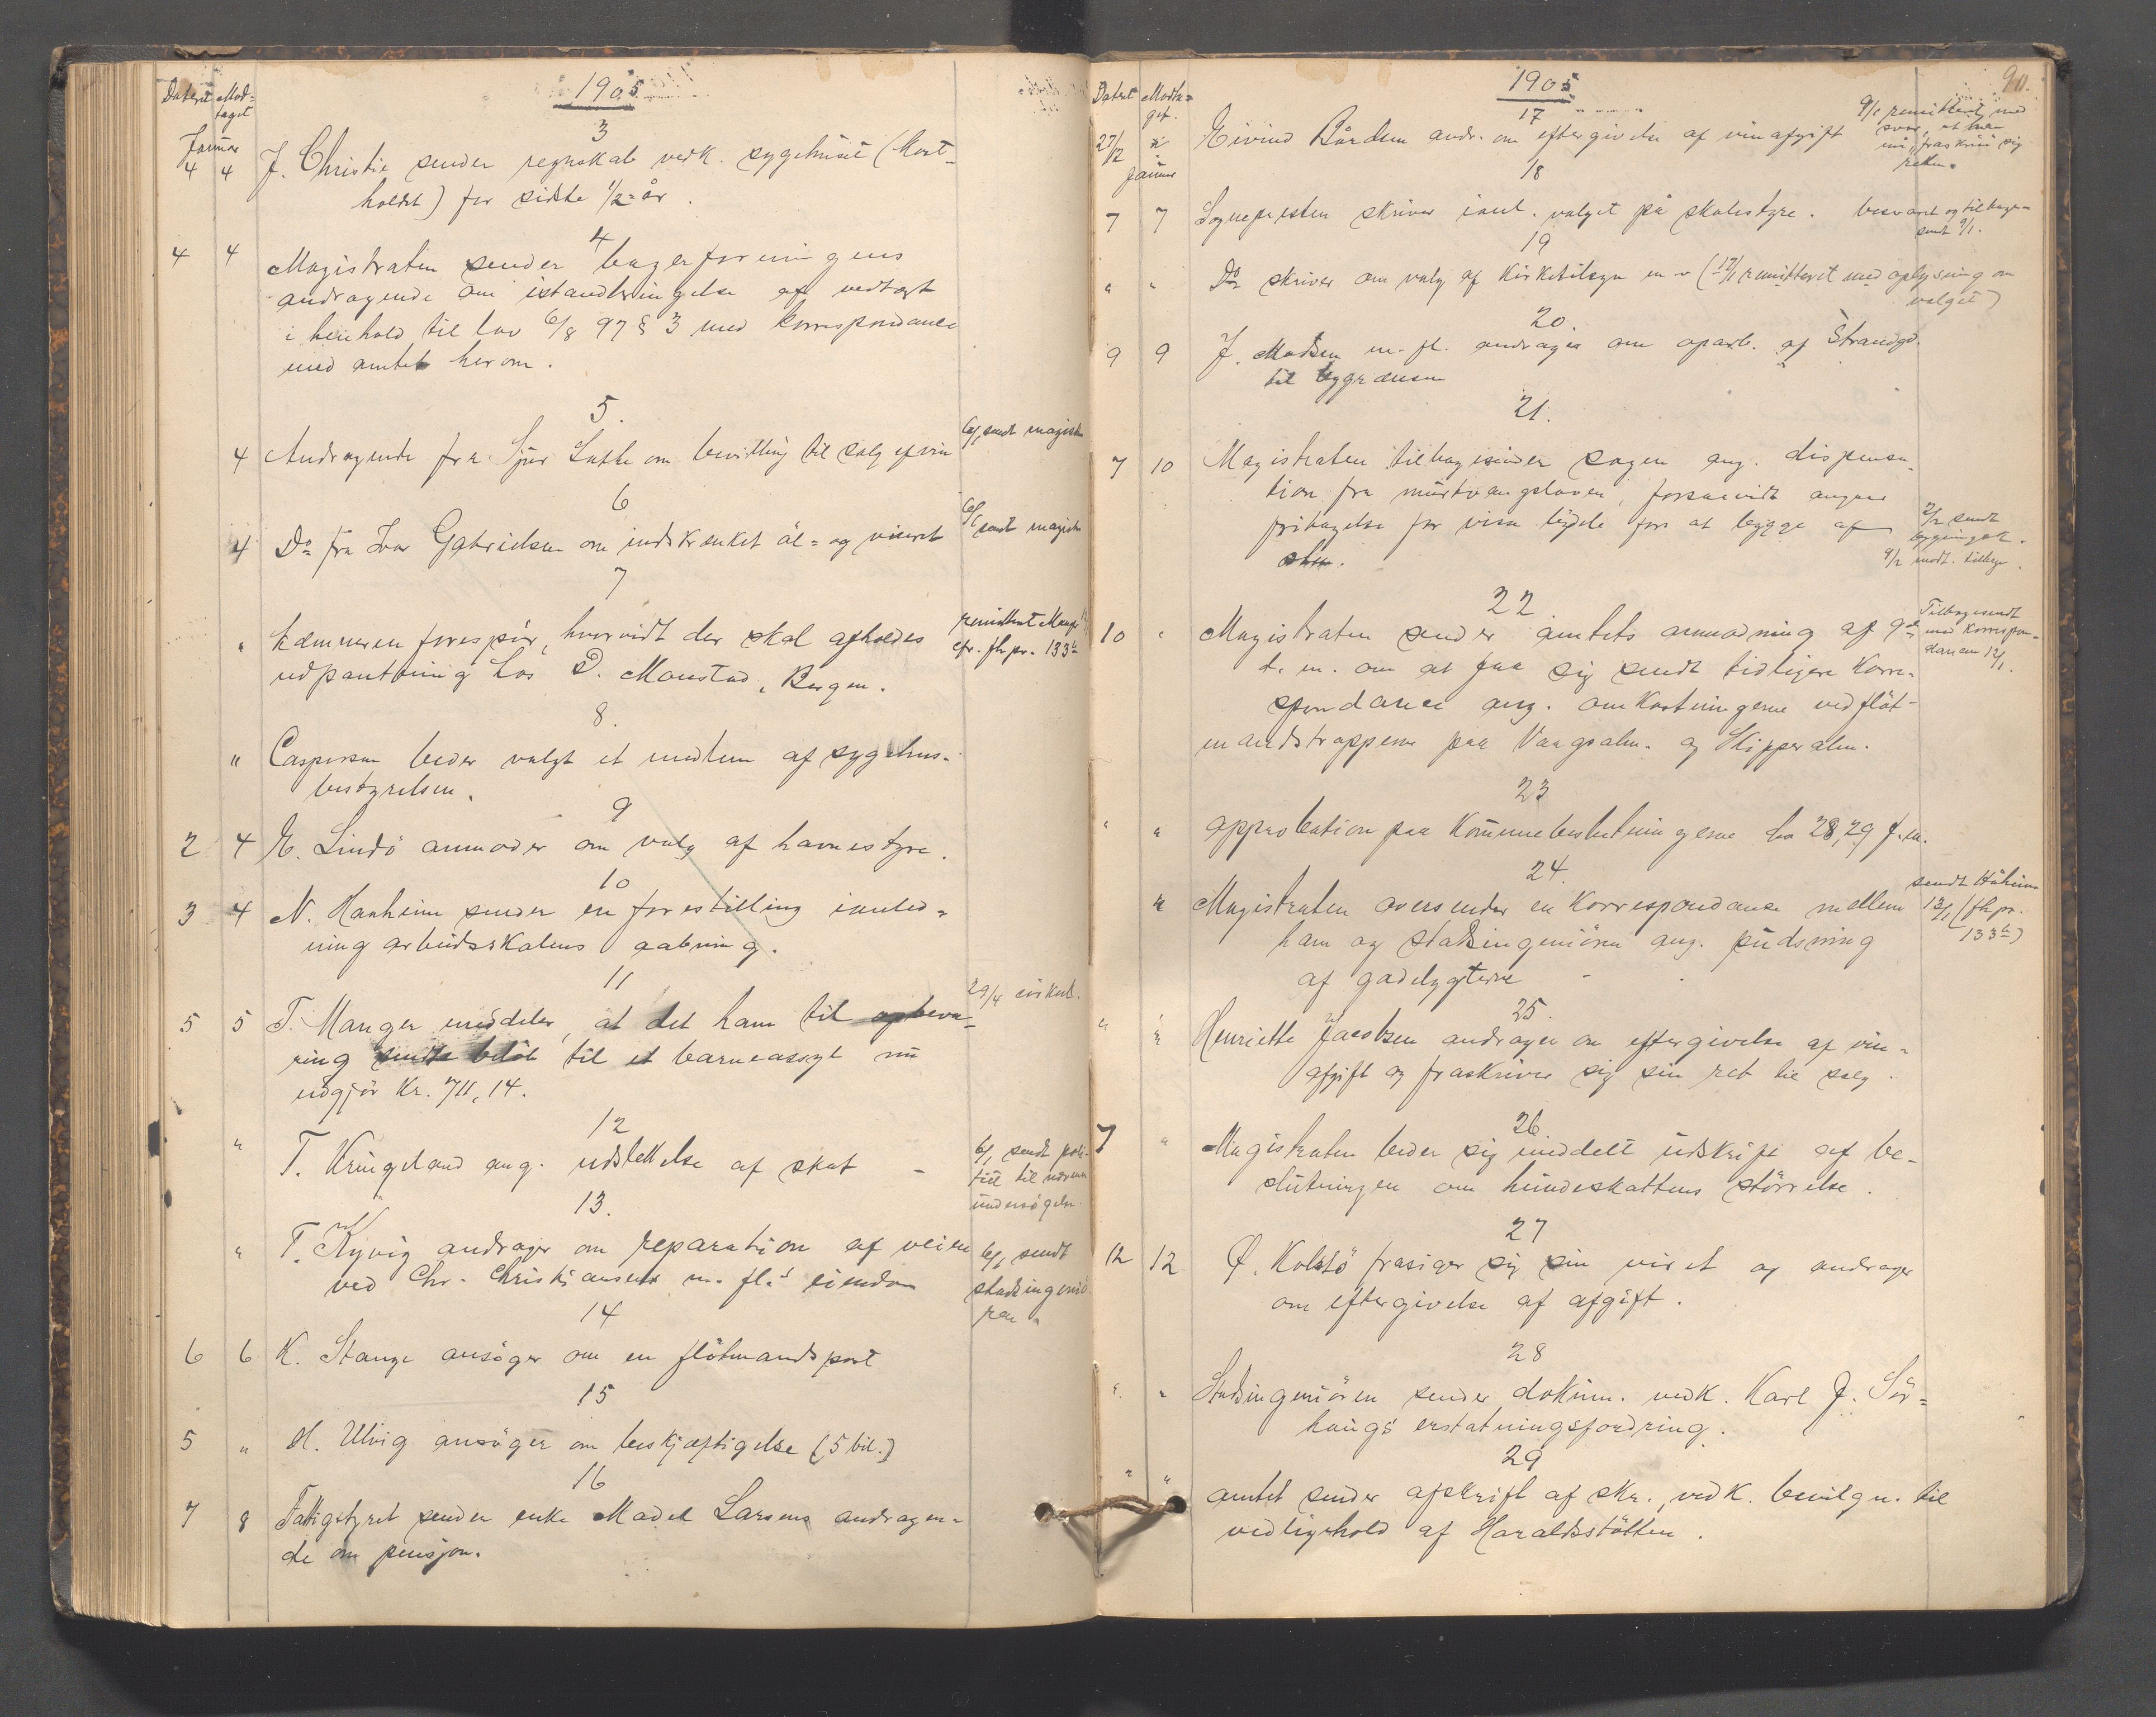 Dateret Mod=
taget
1905
Januar
3
4 4 J. Christie sender regnskab vedk. sygehuset (Mort-
holdet) for sidste 1/2-år.
4
4 4 Magistraten sender bagerforeningens
andragende om istandbringelse af vedtægt
i henhold til lov 6/8 97 § 3 med korrespondance
med amtet herom.
5.
4 Andragende fra Sjur Lothe om bevilling til salg af vin
6/1 sendt magistr
6
4 Do fra Ivar Gabrielsen om indskrænket øl= og vinret
6/1 sendt magistr
7
" Kæmneren forespør, hvorvidt der skal afholdes
udpantning hos D. Monstad, Bergen.
cfr. fh.pr. 133
8.
" Caspersen beder valgt et medlem af sygehus-
bestyrelsen.
9
2 4 E. Lindö anmoder om valg af havnestyre.
10
3 4 N. Hanheim sender en forestilling ianled=
ning arbeidsskolens aabning.
11
5 5 T. Manger meddeler, at det ham til opbeva-
ring sendte beløb til et barneasyl nu
udgjör Kr. 711,14.
29/4 cirkul.
12
" T. Kringeland ang. udslettelse af skat -
6/1 sendt poli-
tiet til nærmere
undersøgelse.
13.
" T. Kyvig andrager om reparation af veien
ved Chr. Christiansens m. fl.s eiendom
6/1 sendt
stadsingeniö
ren
14
6 6 K. Stange ansöger om en flötmandspost
15
5 " H. Ulvig ansöger om beskjæftigelse (5 bil.)
16
7 8 Fattigstyret sender enke Madel Larsens andragen=
de om pension.
90.
Dateret Modta=
get.
1905
17
27/12 Eivind Bårdsen andr. om eftergivelse af vinafgift
9/1 remitteret med
svar, at han
må fraskrive sig
retten.
Januar
18
7 7 Sognepresten skriver ianl. valget på skolestyre. besvaret og tilbage=
sendt 9/1.
19
" " Do skriver om valg af Kirketilsyn (17/1 remitteret med oplysning om
valget)
20.
9 9 J. Madsen m. fl. andrager om oparb. af Strandgd.
til bygrænsen
21.
7 10 Magistraten tilbagesender sagen ang. dispensa-
tion fra murtvangsloven, forsaavidt angaar
fritagelse for visse bydele for at bygge af
sten.
2/2 sendt
bygningsk.
9/2 modt. tilbage.
22
10 " Magistraten sender amtets anmodning af 9de
d. m. om at faa sig sendt tidligere Korre-
spondance ang. omkostningerne ved flöt-
mandstrapperne paa Vaagsalm. og Skipperalm.
Tilbagesendt
med Korrespon-
dancen 12/1.
23
" " approbation paa Kommunebeslutningerne fra 28, 29 f. m.
24.
" Magistraten oversender en Korrespondanse mellem
ham og stadsingeniören ang. pudsning
af gadelygterne -
13/1 (fh.pr.
133)
25.
" " Henriette Jacobsen andrager om eftergivelse af vin=
afgift og fraskriver sig sin ret til salg.
26
7 " Magistraten beder sig meddelt udskrift af be-
slutningen om hundeskattens störrelse.
27
12 12 Ø. Kolstö frasiger sig sin vinret og andrager
om eftergivelse af afgift.
28
" " Stadsingeniören sender dokum. vedk. Karl J. Sör=
haugs erstatningsfordring.
29
" " amtet sender afskrift af skr., vedk. bevilgn. til
vedligehold af Haraldsstötten.